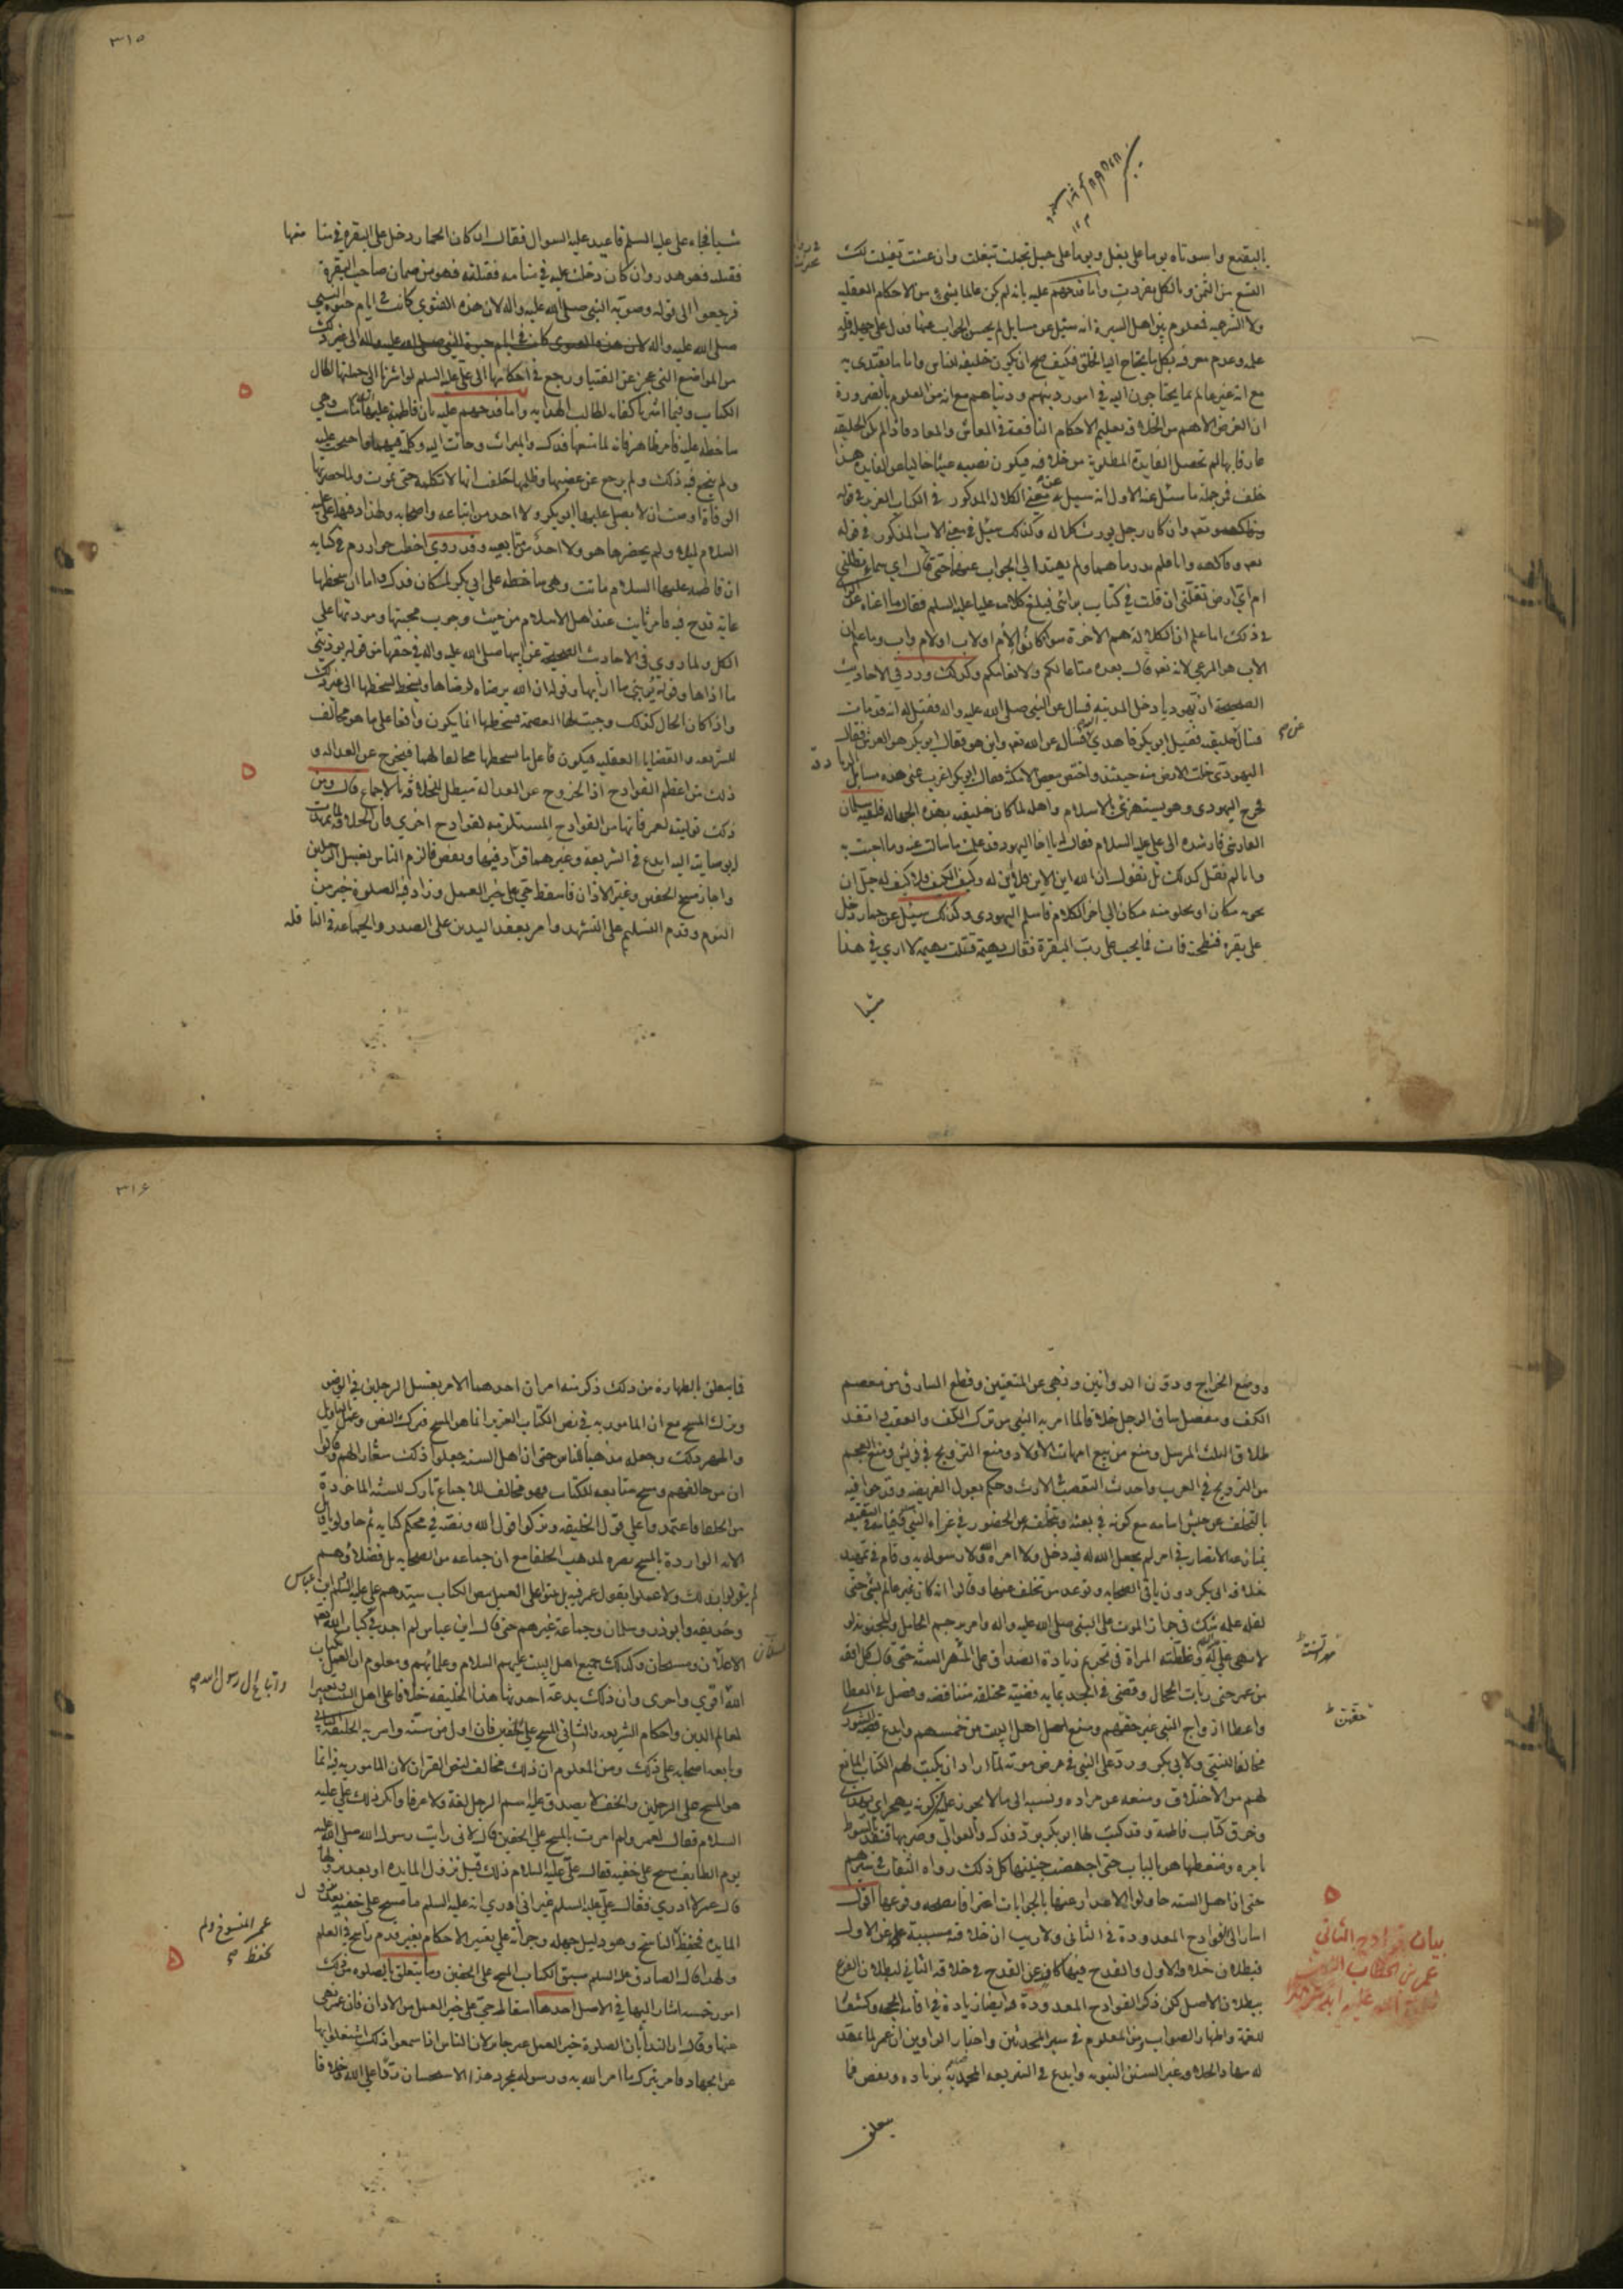 بالبقيع واسوتاه يوما على بغل ويوما على جمل تجملت تبغلت وان عشت تفيلت لك
التسع من الثمن وبالكل تفردت واما قدحهم عليه بانه لم يكن عالما بشيء من الاحكام العقليه
ولا الشرعيه فمعلوم بين اهل السيرة انه سئل عن مسايل لم يحسن الجواب عنها فدل على جهله وقلة
علمه وعدم معرفته بكل ما يحتاج اليه الخلق فكيف صح ان يكون خليفه للناس واماما يقتدى به
مع انه غير عالم بما يحتاجون اليه في امور دينهم ودنياهم مع انه من المعلوم بالضرورة
ان الغرض الاهم من الخلافه تعليم الاحكام النافعة في المعاش والمعاد فاذا لم يكن الخليفه
عارفا بها لم تحصل الفايدة المطلوبة من خلافه فيكون نصبه عبثا خاليا عن الفايده هذا
خلف فمن جملة ما سئل عنه الاول انه سيل عن معنى الكلاله المذكور في الكتاب العزيز في قوله
تعالى وان كان رجل يورث كلاله وكذلك سئل في معنى الاب المذكور في قوله
تعالى وفاكهه وابا فلم يدر ما هما ولم يهتد الى الجواب عنهما حتى قال اي سماء تظلني
ام اي ارض تقلني ان قلت في كتاب برأيي فبلغ كلامه عليا عليه السلام فقال ما اغناه عن الرأي
في ذلك اما علم ان الكلالة هم الاخوة سوا كانوا لأم او لاب او لام واب وما علم ان
الاب هو المرعى لانه تعالى قال بعده متاعا لكم ولانعامكم وكذلك ورد في الاحاديث
الصحيحه ان يهوديا دخل المدينه فسال عن النبي صلى الله عليه واله فقيل له انه قد مات
فسال عن خليفته فقيل ابو بكر فاهدي اليه فسال عن الله تعالى واين هو فقال ابو بكر هو على العرش فقال
اليهودي خلت الارض منه حينئذ واختص ببعض الامكنه فقال ابو بكر اغرب عني هذه مسايل الزنادقة
فخرج اليهودي وهو يستهزئ بالاسلام واهله لما كان خليفته بهذه الجهاله فلقيه سلمان
الفارسي فارشده الى علي عليه السلام فقال له يا اخا اليهود قد علمت ما سالت عنه وما اجبت به
وانا لم نقل كذلك بل نقول ان الله اين الاين فلا اين له وكيف الكيف فلا كيف له جل ان
يحويه مكان او يخلو منه مكان الى اخر الكلام فاسلم اليهودي وكذلك سيئل عن حمار دخل
على بقره فنطحته فمات فما يجب على رب البقرة فقال بهيمة قتلت بهيمة لا ارى في هذا
شيا
٣١٥
شيا فجاء علي عليه السلم فاعيد عليه السوال فقال ان كان الحمار دخل على البقره في منامها
فقتلته فهو هدر وان كان دخلت عليه في منامه فقتلته فهو من ضمان صاحب البقرة
فرجعوا الى قوله وصوبه النبي صلى الله عليه واله لان هذه الفتوي كانت في ايام حيوة النبي
صلى الله عليه واله الى غير ذلك
من المواضع التي عجز عن الفتيا ورجع في احكامها الى علي عليه السلم لو اشرنا الى جملتها لطال
الكتاب وفيما اشرنا كفايه لطالب الهدايه واما قدحهم عليه بان فاطمة عليها السلام ماتت وهي
ساخطه عليه فامر ظاهر فانه لما منعها فدك والميراث وجاءت اليه وكلمته فيهما واحتجت عليه
ولم ينجع فيه ذلك ولم يرجع عن غصبها وظلمها حلفت انها لا تكلمه حتى تموت ولما حضرتها
الوفاة اوصت ان لا يصلي عليها ابو بكر ولا احد من اتباعه واصحابه ولهذا دفنها علي عليه
السلام ليلا ولم يحضرها هو ولا احد من تابعيه وقد روى اخطب خوارزم في كتابه
ان فاطمه عليها السلام ماتت وهي ساخطه على ابي بكر لمكان فدك واما ان سخطها
عليه قدح فيه فامر ثابت عند اهل الاسلام من حيث وجوب محبتها ومودتها على
الكل ولما روي في الاحاديث الصحيحه عن ابيها صلى الله عليه واله في حقها من قوله يوذيني
ما اذاها وقوله يريبني ما ارابها وقوله ان الله يرضاه لرضاها ويسخط لسخطها الى غير ذلك
واذا كان الحال كذلك وجبت لها العصمة فسخطها انما يكون واقعا على ما هو مخالف
للشريعه والقضايا العقليه فيكون فاعل ما يسخطها مخالفا لهما فيخرج عن العداله و
ذلك من اعظم القوادح اذ الخروج عن العدالة مبطل للخلافه بالاجماع قال ومن
ذلك توليته لعمر فانها من القوادح المستلزمه لقوادح اخري فان الخلافه لما تمهدت
له بوصايته اليه ابدع في الشريعة وغيرهما قراد فيها ونقص فالزم الناس بغسل الرجلين
واجاز مسح الخفين وغير الاذان فاسقط حي على خير العمل وزاد فيه الصلوة خير من
النوم وقدم التسليم على التشهد وامر بعقد اليدين على الصدر والجماعه في النافله
ووضع الخراج ودون الدواوين ونهى عن المتعتين وقطع السارق من معصم
الكف ومفصل ساق الرجل خلافا لما امر به النبي من ترك الكف والعقب وانفذ
طلاق الثلث المرسل ومنع من بيع امهات الاولاد ومنع التزويج في قريش ومنع العجم
من التزويج في العرب واحدث التعصيب في الارث وحكم بعول الفريضه وقدحوا فيه
بالتخلف عن جيش اسامه مع كونه في بعثه وبتخلفه عن الحضور في عزاء النبي
منازعة الانصار في امر لم يجعل الله له فيه دخل ولا امره الله ولا رسوله به وقام في تمهيد
خلافه ابي بكر دون باقي الصحابه وتوعد من تخلف عنها وقالوا انه كان غير عالم بشي حتى
لقلة علمه شك في جواز الموت على النبي صلى الله عليه واله وامر برجم الحامل والمجنونه لو
لا نهي علي له وغلطته المراة في تحريم زيادة الصداق على المهر السنة حتى قال كل افقه
من عمر حتى ربات الحجال وقضى في الجد بمايه قضية مختلفه متناقضه وفضل في العطا
واعطا ازواج النبي غير حقهم ومنع اهل البيت من خمسهم وابدع قصه الشورى
مخالفا للنبي ولابي بكر ورد على النبي في مرض موته لما اراد ان يكتب لهم الكتاب المانع
لهم من الاختلاف ومنعه عن مراده ونسبه الى ما لا يجوز عليه من كونه يهجر اي يهذي
وخرق كتاب فاطمة وقد كتب لها ابو بكر برد فدك والعوالي وضربها قنفذ بالسوط
بامره وضغطها هو بالباب حتى اجهضت جنينها كل ذلك رواه الثقات في سيرهم
حتى ان اهل السنه حاولوا الاعتذار عنها بالجوابات اعترافا بصحه وقوعها اقول
اشار الى القوادح المعدودة في الثاني ولا ريب ان خلافته مسببة عن الاول
فبطلان خلافه الاول والقدح فيها كاف عن القدح في خلافه الثاني لبطلان الفرع
ببطلان الاصل لكن ذكر القوادح المعدودة فيه ايضا زيادة في اقامه الحجه وكشفا
للغمة واظهار الصواب ومن المعلوم في سير المحدثين واخبار الراوين ان عمر لما تمهد
له مهاد الخلافه غير السنن النبويه وابدع في الشريعه المحمدية بزياده ونقص فما
يتعلق
بيان قوادح الثاني
عمر بن الخطاب
٣١٦
فما يتعلق بالطهاره من ذلك ذكر منه امران احدهما الامر بغسل الرجلين في الوضو
وترك المسح مع ان المامور به في نص الكتاب العزيز انما هو المسح فترك النص وعمل بالتاويل
وجعله مذهبا للناس حتى ان اهل السنه جعلوا ذلك شعارا لهم وقالوا
ان من خالفهم ومسح متابعه للكتاب فهو مخالف للاجماع تارك للسنة الماخوذة
من الخلفا فاعتمدوا على قول الخليفه وتركوا قول الله ونصه في محكم كتابه ثم حاولوا تاويل
الايه الواردة بالمسح نصره لمذهب الخلفا مع ان جماعه من الصحابه بل فضلاؤهم
لم يقولوا بذلك ولا عملوا بقول عمر فيه بل بقوا على العمل بنص الكتاب سيدهم علي عليه السلم وابن عباس
وحذيفه وابوذر وسلمان وجماعة غيرهم حتى قال ابن عباس لم اجد في كتاب الله تعالى
الا غسلان ومسحان وكذلك جميع اهل البيت عليهم السلام وعلمائهم ومعلوم ان العمل بكتاب
الله اقوي واحرى وان ذلك بدعة احدثها هذا الخليفه خلافا على اهل البيت وتغييرا
لمعالم الدين واحكام الشريعه والثاني المسح على الخفين فان اول من سنه وامر به الخليفه الثاني
وتابعه اصحابه على ذلك ومن المعلوم ان ذلك مخالف لنص القران لان المامور به فيه انما
هو المسح على الرجلين والخف لا يصدق عليه اسم الرجل لغة ولا عرفا وانكر ذلك علي عليه
السلام فقال لعمر ولم امرت بالمسح على الخفين قال لاني رايت رسول الله صلى الله عليه
يوم الطايف مسح على خفيه فقال علي عليه السلام ذلك قبل نزول المايده او بعد نزولها
قال عمر لا ادري فقال علي عليه السلم غير اني ادري انه عليه السلم ما مسح على خفيه بعد نزول
المايده فحفظ الناسخ وهو دليل جهله وجرأته على تغيير الاحكام بغير قدم راسخ في العلم
ولهذا قال الصادق عليه السلم سبق الكتاب المسح على الخفين وما يتعلق بالصلوه من ذلك
امور خمسه اشار اليها في الاصل احدها اسقاط حي على خير العمل من الاذان فان عمر نهى
عنها وقال ان الندا بان الصلوة خير العمل غير جايز لان الناس اذا سمعوا ذلك اشتغلوا بها
عن الجهاد فامر بترك ما امر الله به ورسوله بمجرد هذا الاستحسان ردا على الله وخلافا
واتباع ال رسول الله
عمر المنسوخ ولم
يحفظ